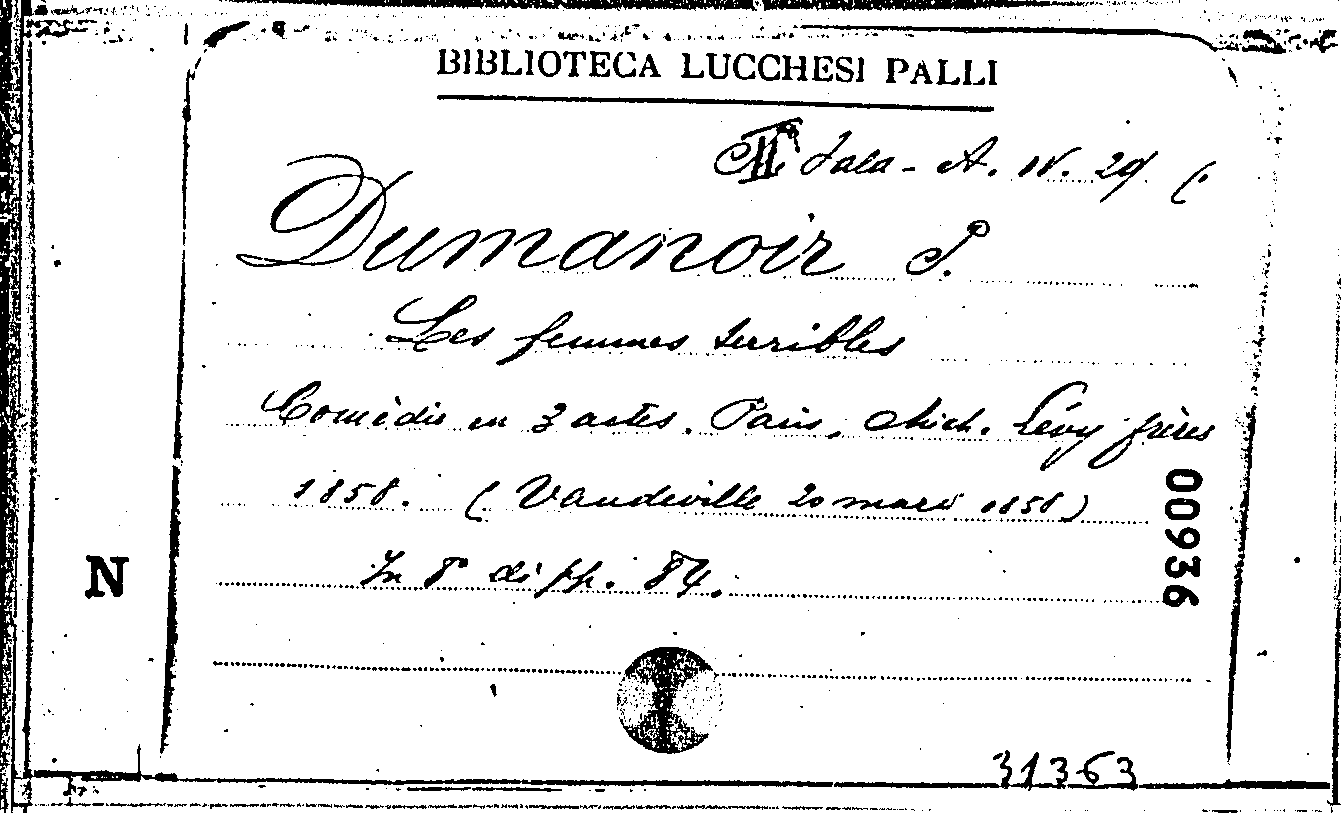 BIBLIOTECA LUCCHESI PALLI
II Sala - A. IV. 29 (.
Dumanoir P.
Les femmes terribles
Comédie en 3 actes. Paris, Mich. Lévy frères
1858. (Vaudeville 20 mars 1858)
In 8° di pp. 84.
00936
N
31363